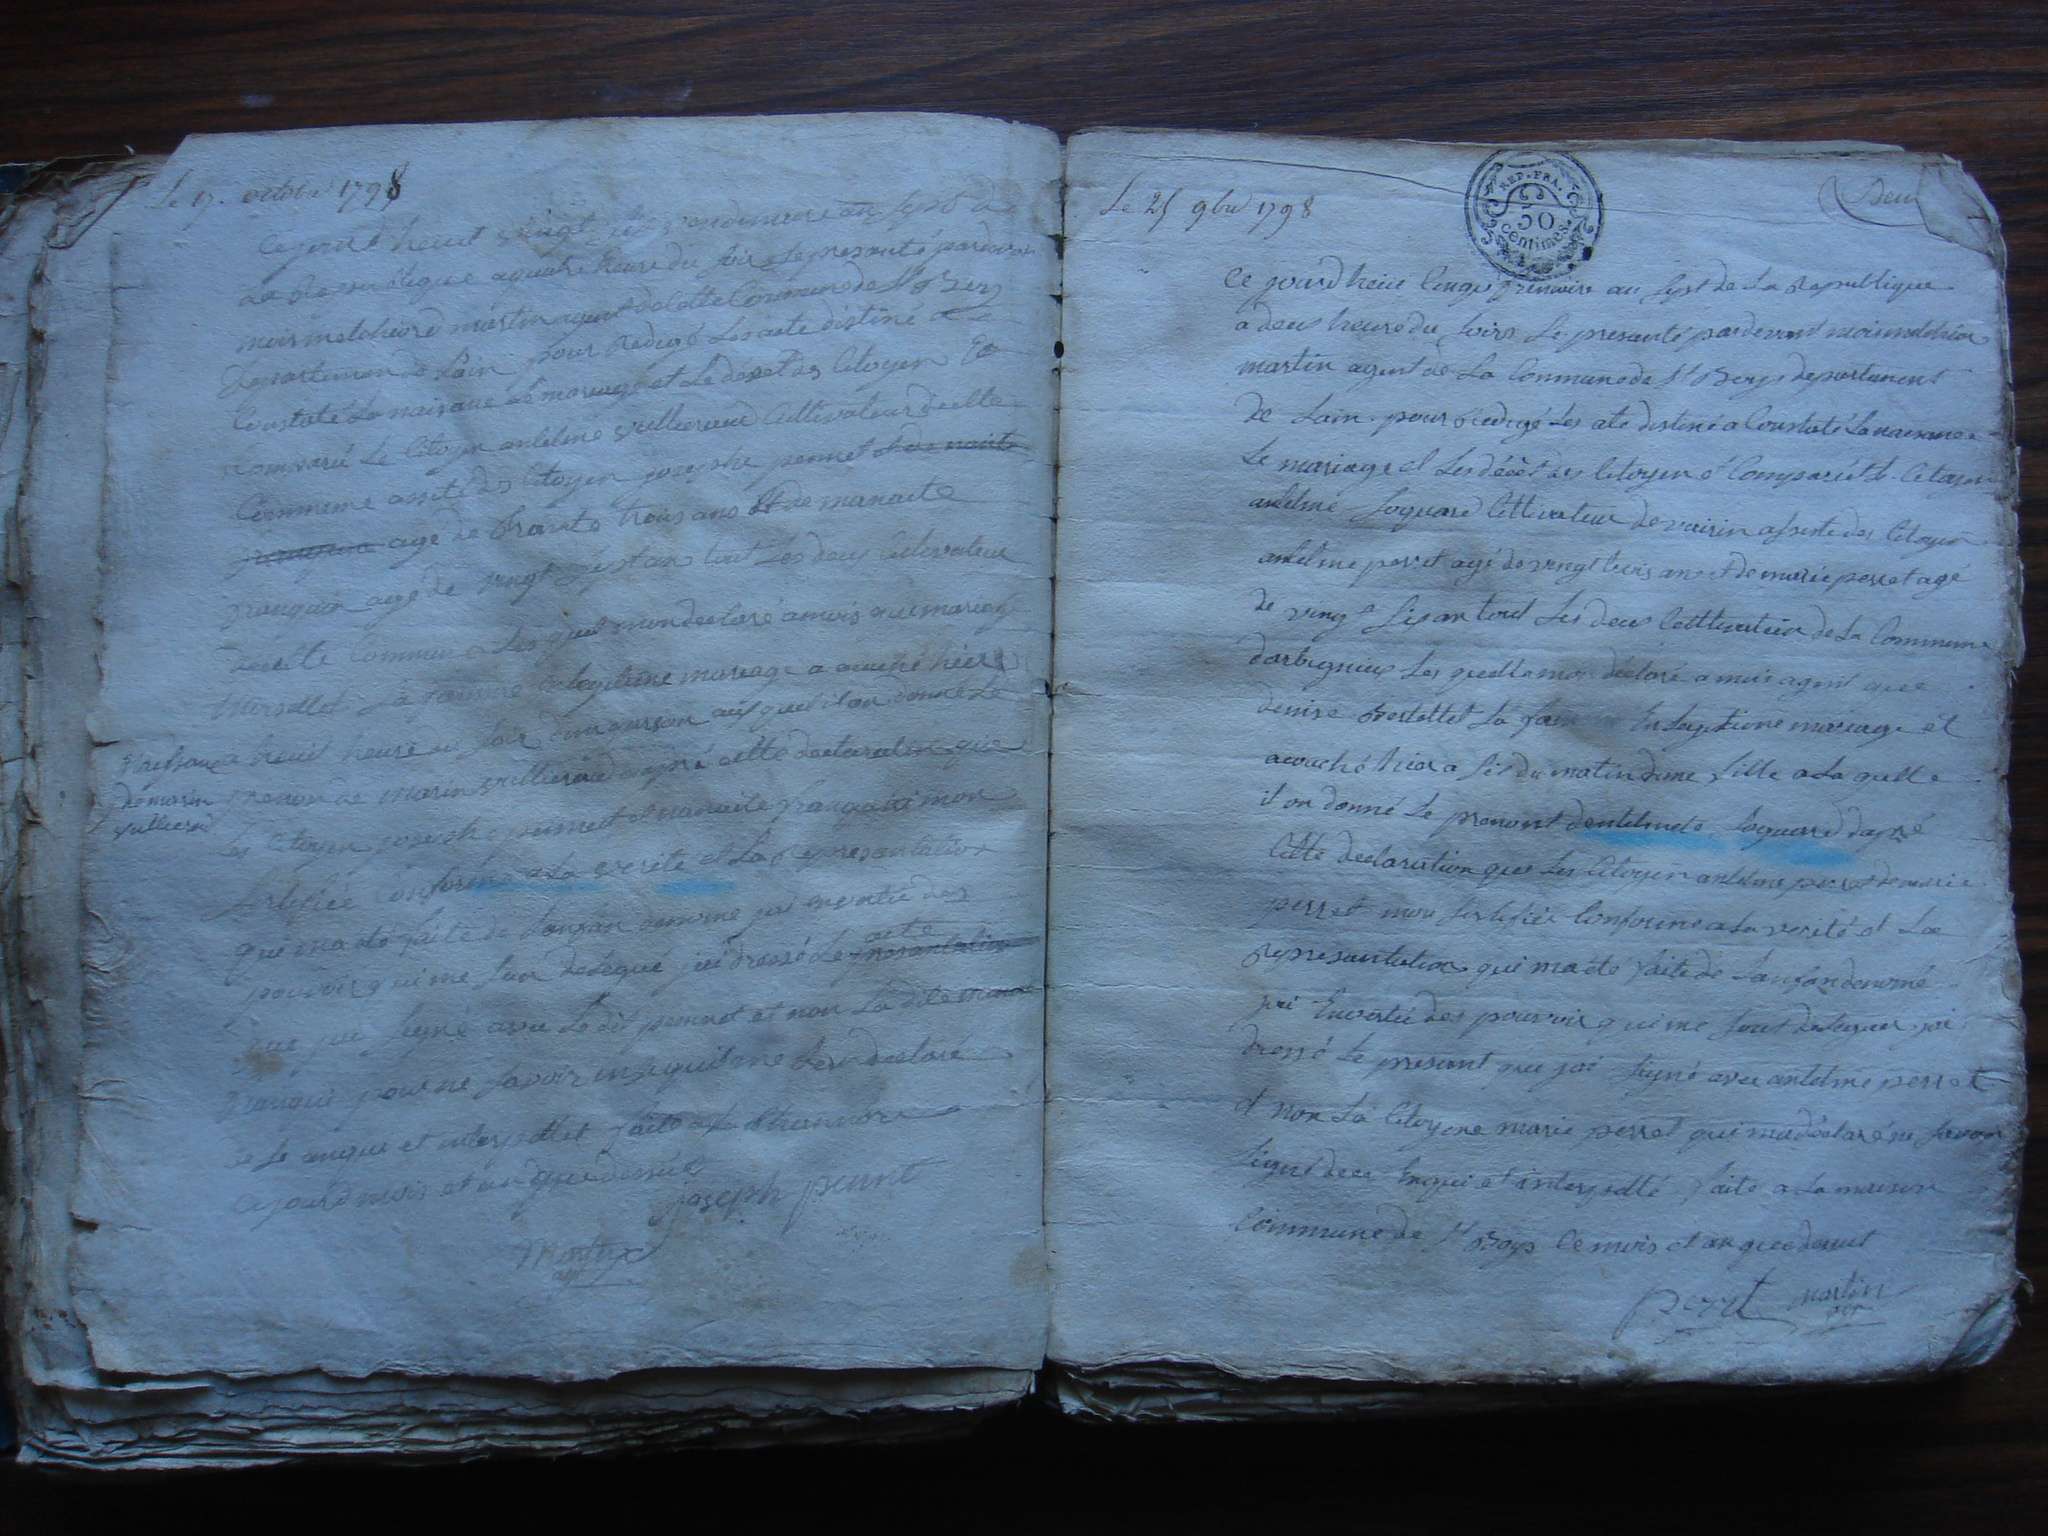 Le 17. octobre 1798
Ce jourd heuit vingt six vendemiaire an sept de
la Republique a quatre heure du soir se presanté pardevan
mois melchiord martin agent de cette Commune de St Boys
departemen de Lain pour Redigé Les acte distiné a
Constaté La naisance Le mariage et Le decet des Citoyen Et
comparü Le Citoyen antelme vullierod Cultivateur de cette
Commune assité des Citoyen josephe pennet et de
agé de trante trois ans Et de
agé de vingt sept an tout Les deus Cultivateur
decette Commun Les quel mon declaré a mois que
La famme En legitime mariage a acuché hier
a heuit heure du soir dun garson auquel il on donné Le
prenon de marin vullierod dapré cette declaration que
Les Citoyen josephe pennet et mon
Certifiée Conforme a La verité et La Representation
qui ma été faite de Lanfan denomé jai en vertu des
pouvoir qui me son delegué jai dressé Le presantation
acte
que jai signé avec Le dit pennet et non La dite
pour ne savoir me Lon declaré
de Le anquit et interpellet faite a La
Ce jourd mois et an que dessus
joseph pennet
Martin
agt
naissance
de marin
vullierod
Le 25 9bre 1798
Deux
REP. FRA.
50
centimes
Ce jourd heuit Cinq frimaire an sept de La Republique
a deus heure du soire Se presanté pardevant mois melchior
martin agent de La Commune de St Boys departement
de Lain pour Redigé Les ate distiné a Constaté La naisance
Le mariage et Les décet des Citoyen Et Comparü Le Citoyen
antelme Loquard Cultivateur de voirin asisté des Citoyen
antelme perret agé de vingt trois an et de marie perret agé
de vingt sis an tout Les deus Culttivateur de La Commune
darbignieu Les quelle mon déclaré a mois agent que
denise La famme En Legitime mariage et
acouché hier a sis du matin dune fille a La quelle
il on donné Le prenont dentelmete Loquard dapré
Cette declaration que Les Citoyen antelme perret de marie
perret mon sertifiée Conforme a La verité et La
Representation qui ma été faite de Lanfan denomé
jai En vertu des pouvoir qui me sont delegué jai
dressé Le present que jai signé avec antelme perret
et non La Citoyene marie perret qui ma déclaré ne savoir
signé de ce Enquis et interpellé faite a La maison
Commune de St Boys Ce mois et an que desut
Perret Martin
agt